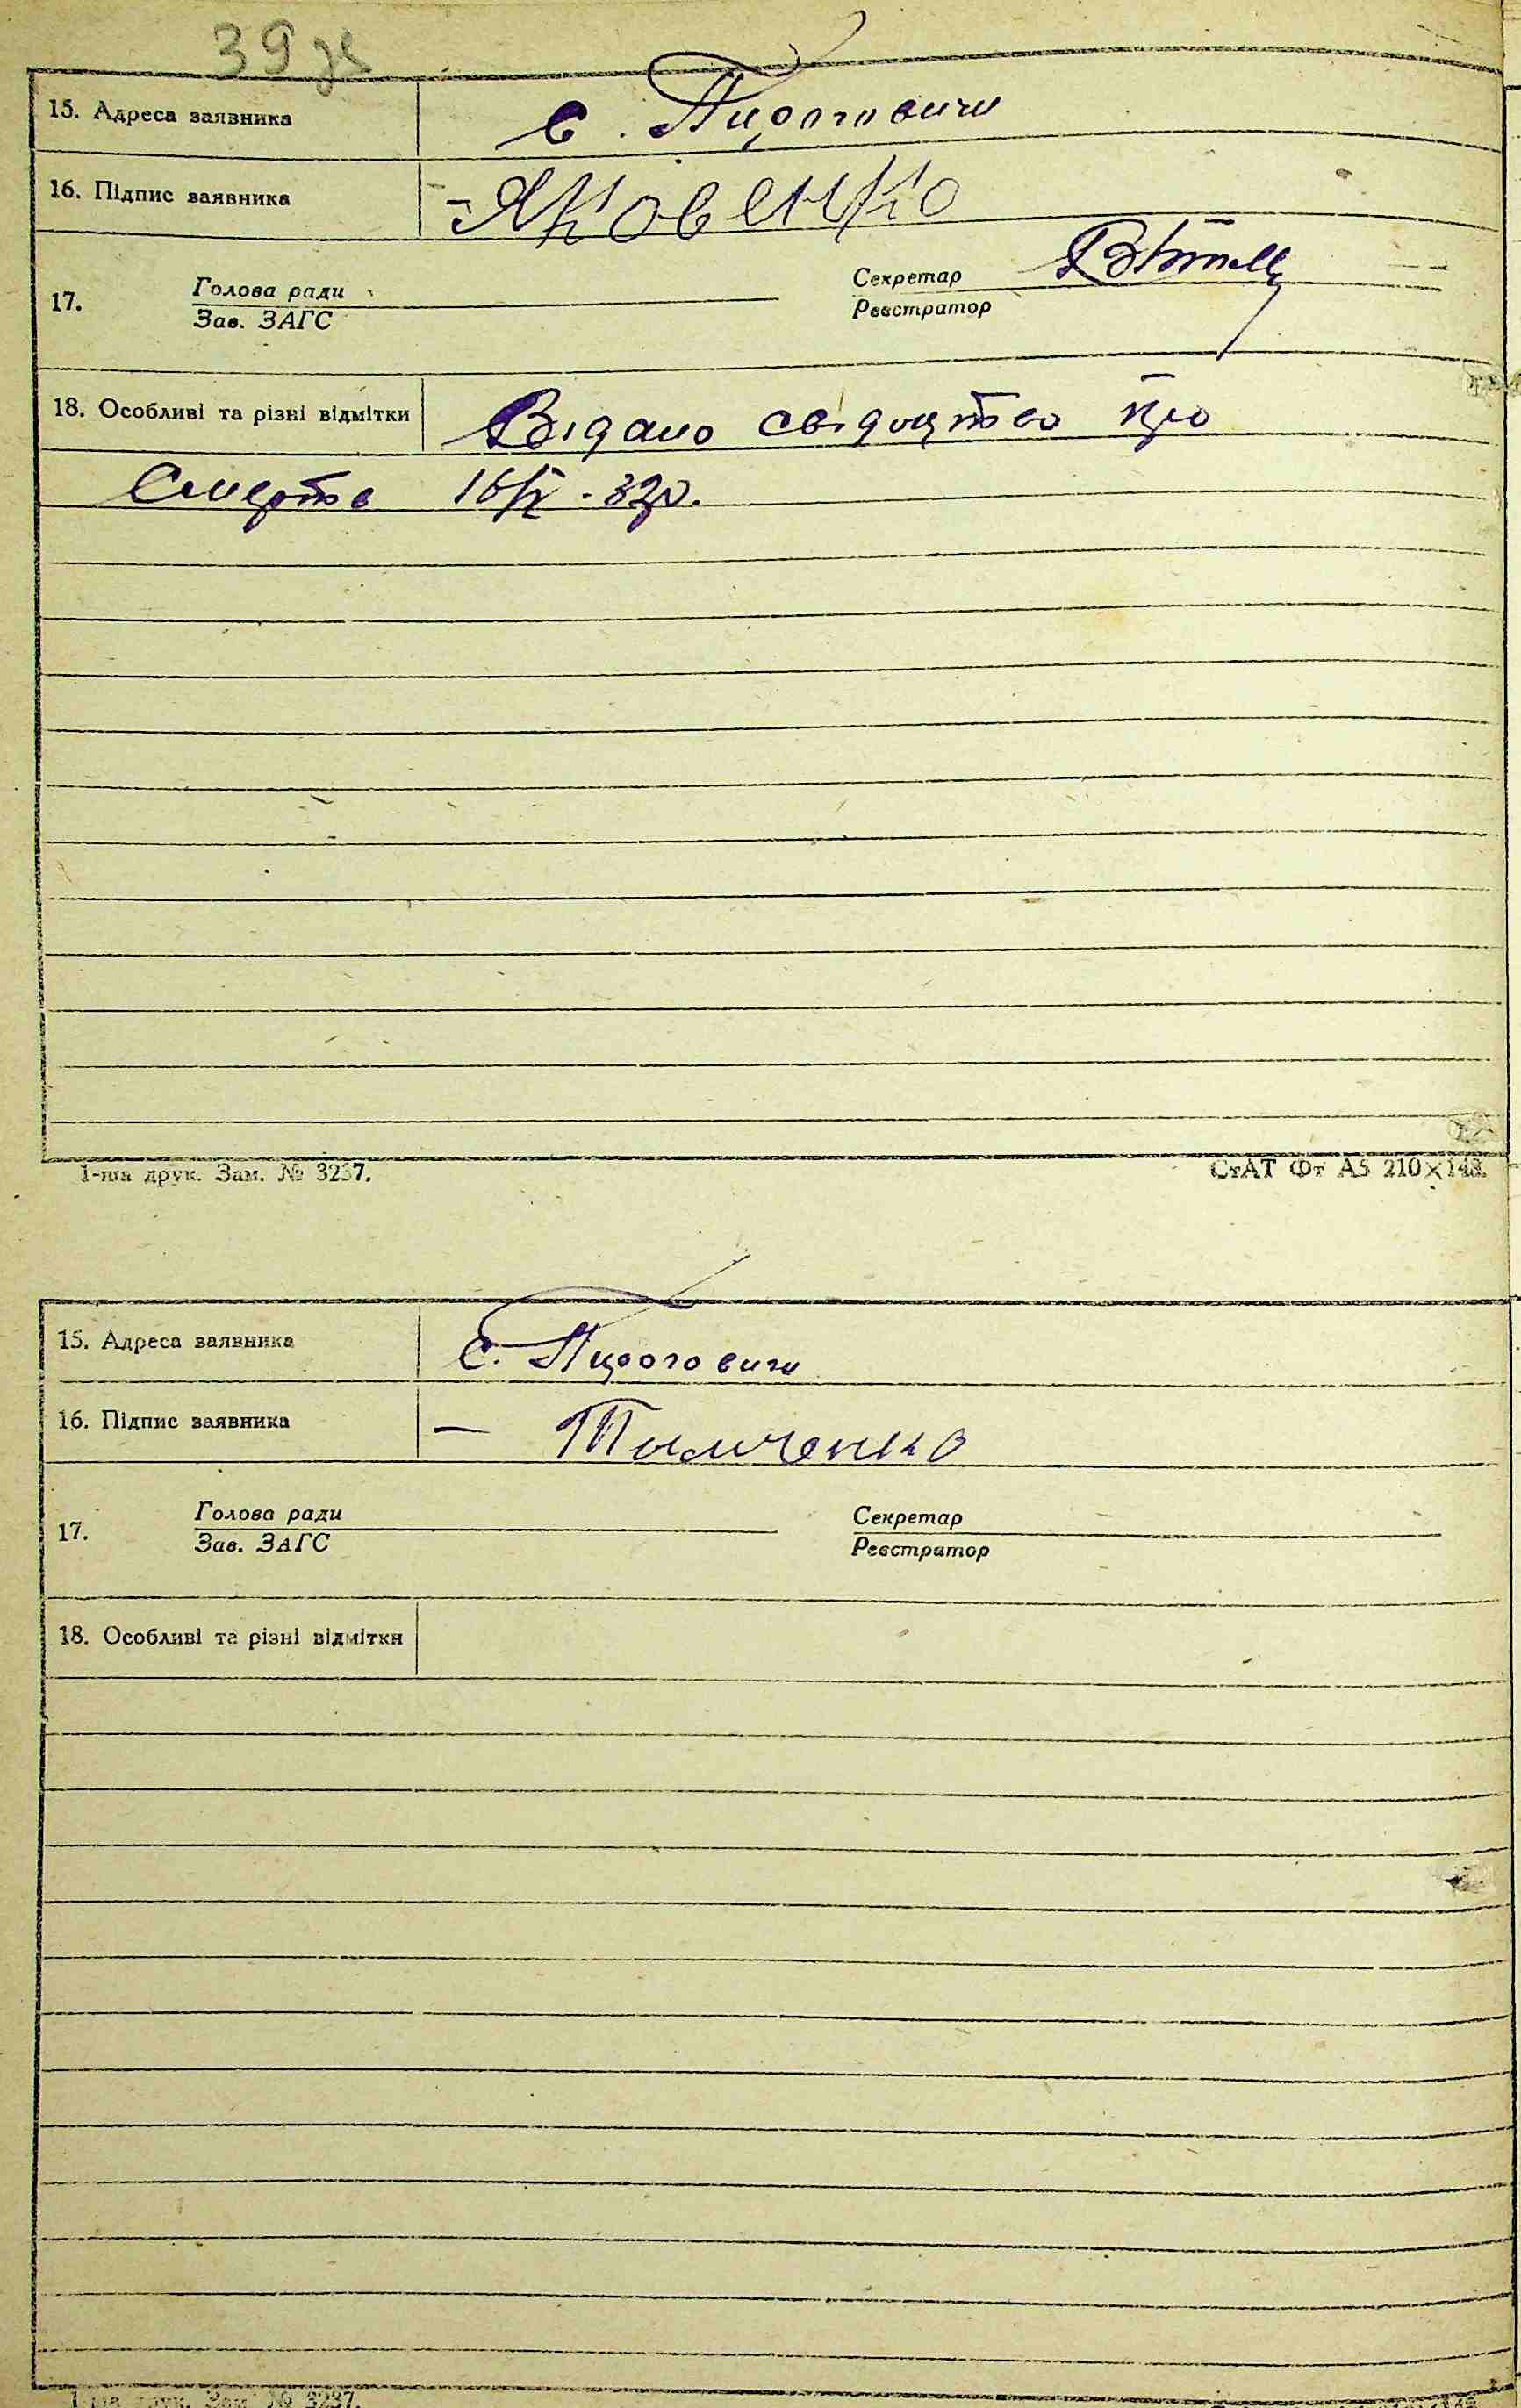 39 зв
15. Адреса заявника с. Пироговичи
16. Підпис заявника - Яковенко
17. Голова ради Секретар
Зав. ЗАГС Реєстратор
18. Особливі та різні відмітки Видано свідоцтво про
Смерть 16/V . 32р.
1-ша друк. Зам. № 3237. СтАТ Фт А5 210×148.
15. Адреса заявника С. Пироговичи
16. Підпис заявника — Тимченко
17. Голова ради Секретар
Зав. ЗАГС Реєстратор
18. Особливі та різні відмітки
1-ша друк. Зам. № 3237.